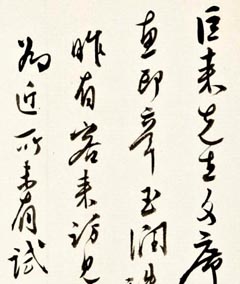 巨来先生文席
惠印章玉润
昨有客来访见
为近所未有试